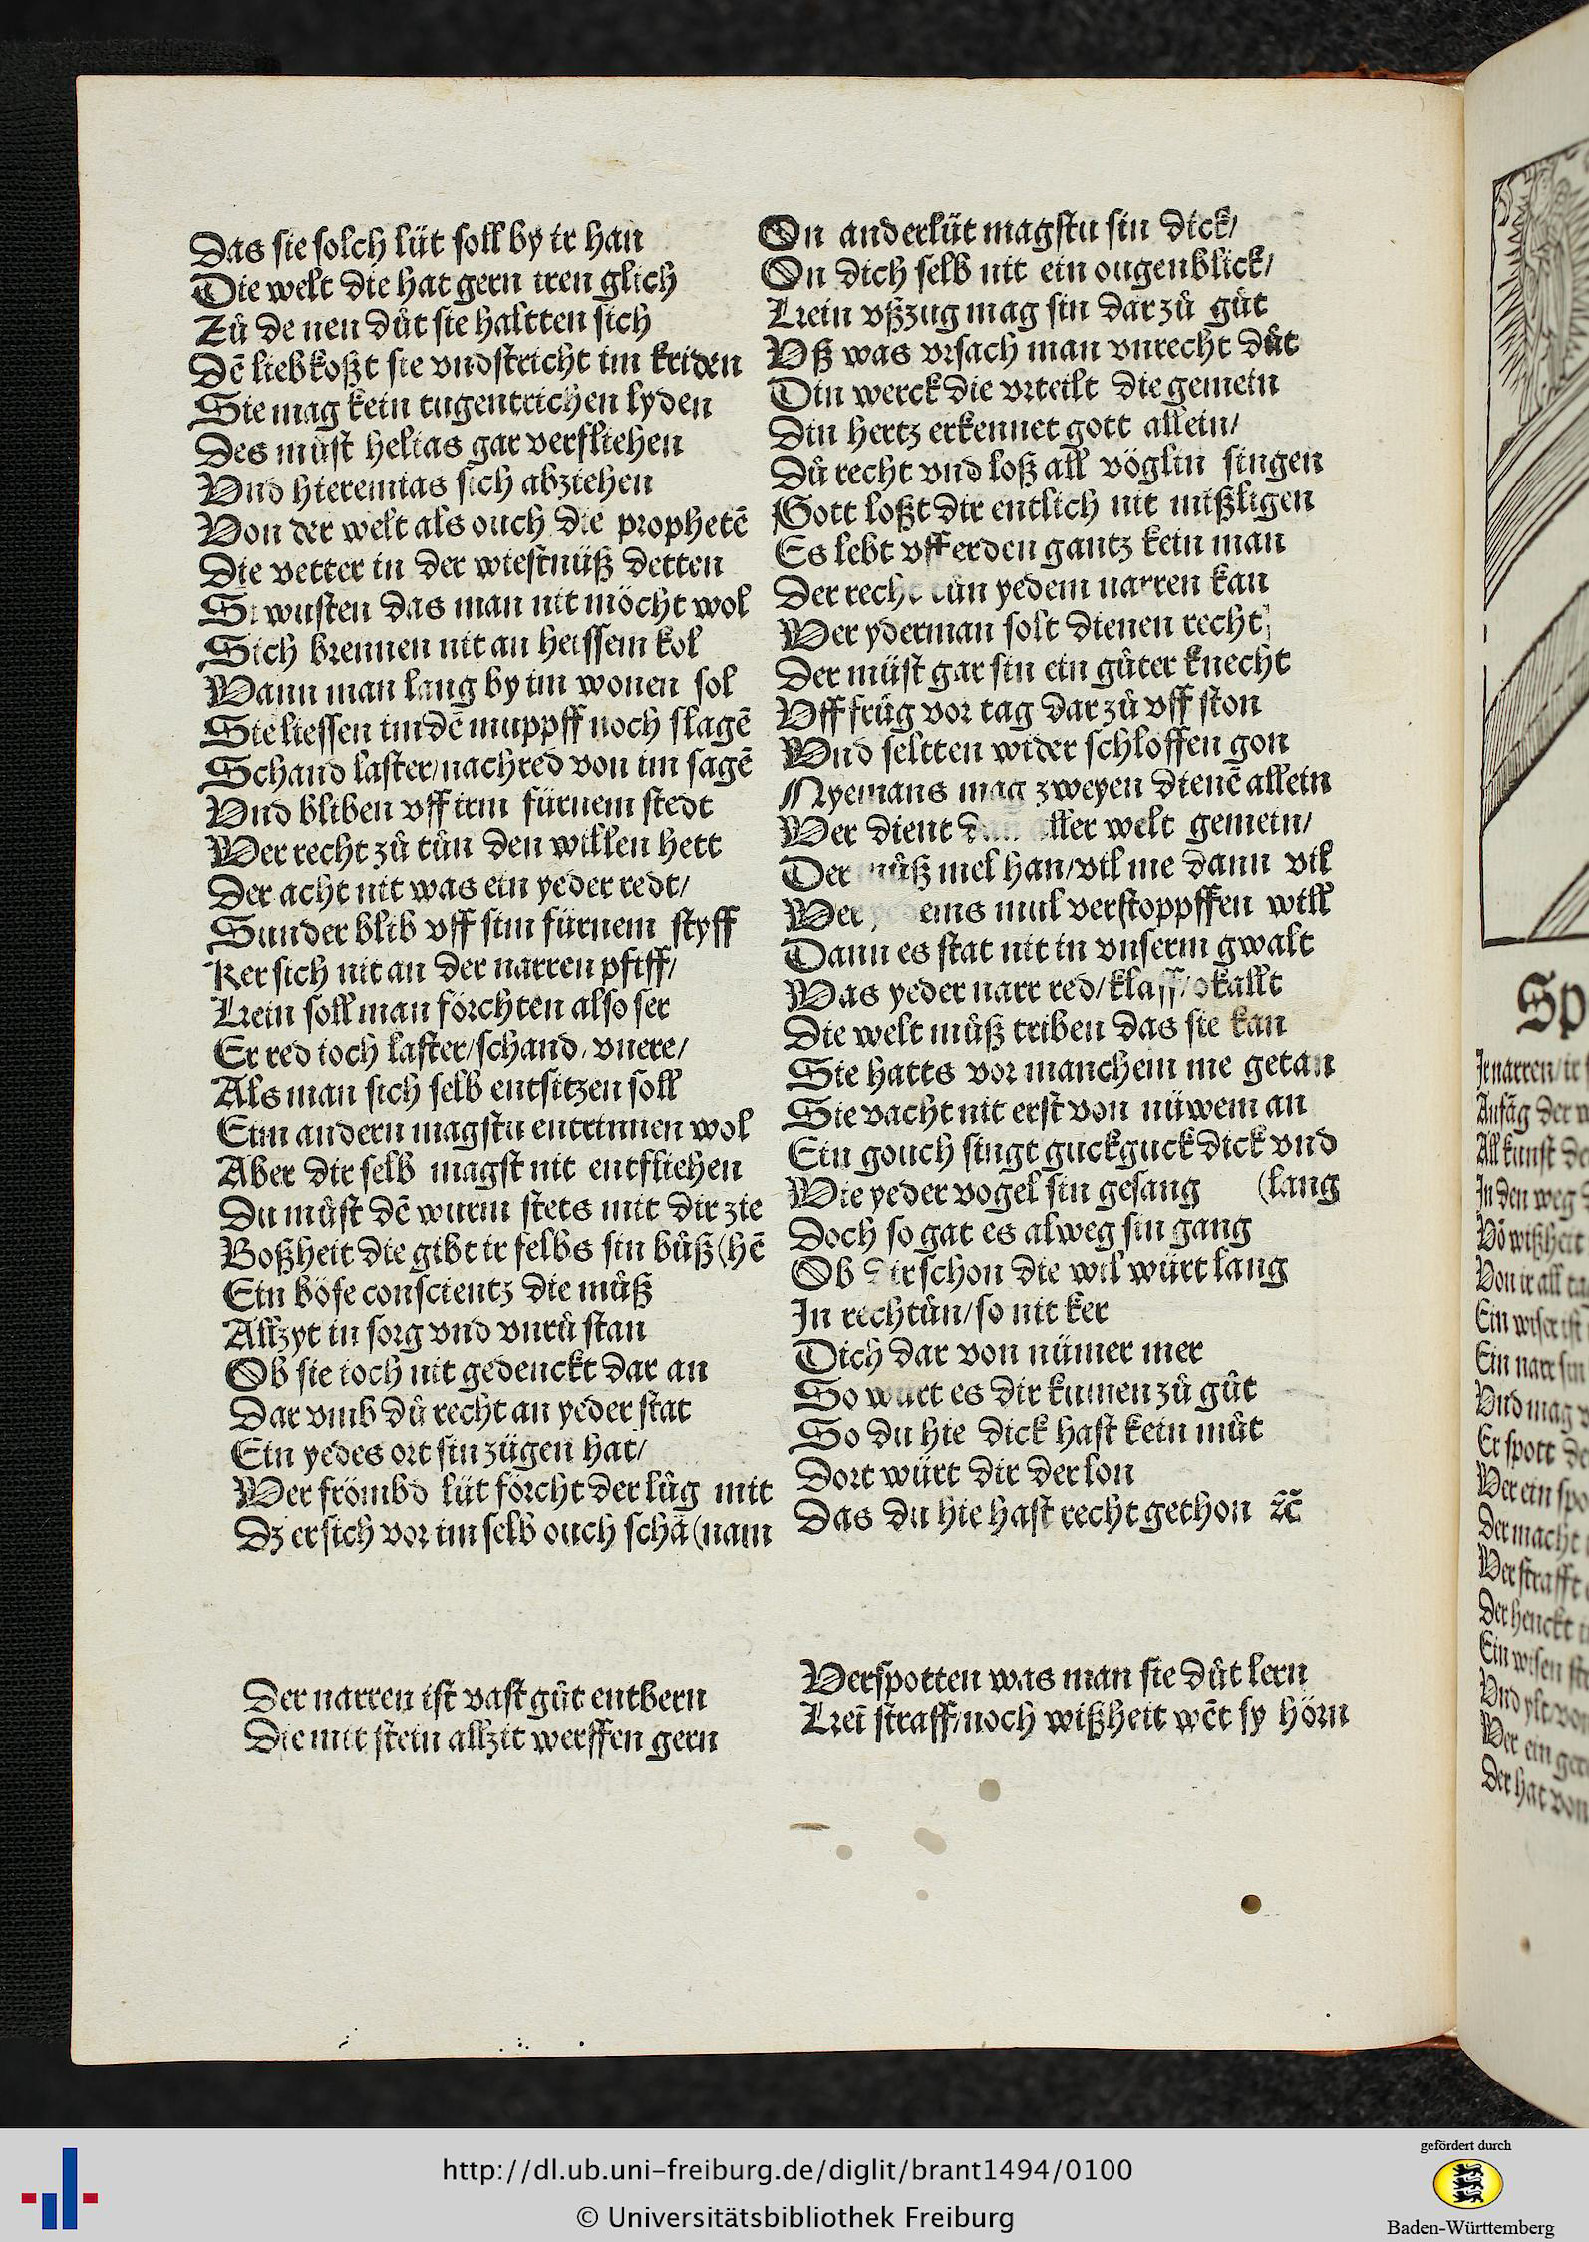 Das sie solch lüt soll by ir han
Die welt die hat gern iren glich
Zů de nen důt sie haltten sich
Dē liebkoßt sie vnd stricht im kriden
Sie mag kein tugentrichen lyden
Des můst helias gar verfliehen
Vnd hieremias sich abziehen
Von der welt als ouch die prophetē
Die vetter in der wiestnüß detten
Si wusten das man nit möcht wol
Sich brennen nit an heissem kol
Wann man lang by im wonen sol
Sie liessen im dē muppff noch slagē
Schand laster/nachred von im sagē
Vnd bliben vff irm fürnem stedt
Wer recht zů tůn den willen hett
Der acht nit was ein yeder redt/
Sunder blib vff sim fürnem styff
Ker sich nit an der narren pfiff/
Kein soll man förchten also ser
Er red ioch laster/schand/vnere/
Als man sich selb entsitzen soll
Eim andern magstu entrinnen wol
Aber dir selb magst nit entfliehen
Du můst dē wurm stets mit dir zie
Boßheit die gibt ir selbs sin bůß (hē
Ein böse conscientz die můß
Allzyt in sorg vnd vnrů stan
Ob sie ioch nit gedenckt dar an
Dar vmb dů recht an yeder stat
Ein yedes ort sin zügen hat/
Wer frömbd lüt förcht der lůg mitt
Dz er sich vor im selb ouch schā (nam
On anderlüt magstu sin dick/
On dich selb nit ein ougenblick/
Kein vßzug mag sin dar zů gůt
Vß was vrsach man vnrecht důt
Din werck die vrteilt die gemein
Din hertz erkennet gott allein/
Dů recht vnd loß all vöglin singen
Gott loßt dir entlich nit mißligen
Es lebt vff erden gantz kein man
Der recht tůn yedem narren kan
Wer yderman solt dienen recht/
Der müst gar sin ein gůter knecht
Vff früg vor tag dar zů vff ston
Vnd seltten wider schloffen gon
Nyemans mag zweyen dienē allein
Wer dient dañ aller welt gemein/
Der můß mel han/vil me dann vil
Wer yedems mul verstoppffen will
Dann es stat nit in vnserm gwalt
Was yeder narr red/klaff/ kallt
Die welt můß triben das sie kan
Sie hatts vor manchem me getan
Sie vacht nit erst von nüwem an
Ein gouch singt guckguck dick vnd
Wie yeder vogel sin gesang (lang
Doch so gat es alweg sin gang
Ob dir schon die wil würt lang
In rechtůn/so nit ker
Dich dar von nümer mer
So würt es dir kumen zů gůt
So du hie dick hast kein můt
Dort würt dir der lon
Das du hie hast recht gethon ⁊c̄
Der narren ist vast gůt entbern
Die mit stein allzit werffen gern
Verspotten was man sie důt lern
Kei straff/noch wißheit wēt sy hörn
Sp
Ir narren/ir
Anfāg der w
All kunst de
In den weg
Vō wißheit
Von ir all ta
Ein wiser ist
Ein narr sin
Vnd mag
Er spott de
Wer ein spo
Der macht
Wer strafft
Der henckt
Ein wisen str
Vnd ylt von
Wer ein gere
Der hat von
http://dl.ub.uni-freiburg.de/diglit/brant1494/0100
© Universitätsbibliothek Freiburg
gefördert durch
Baden-Württemberg